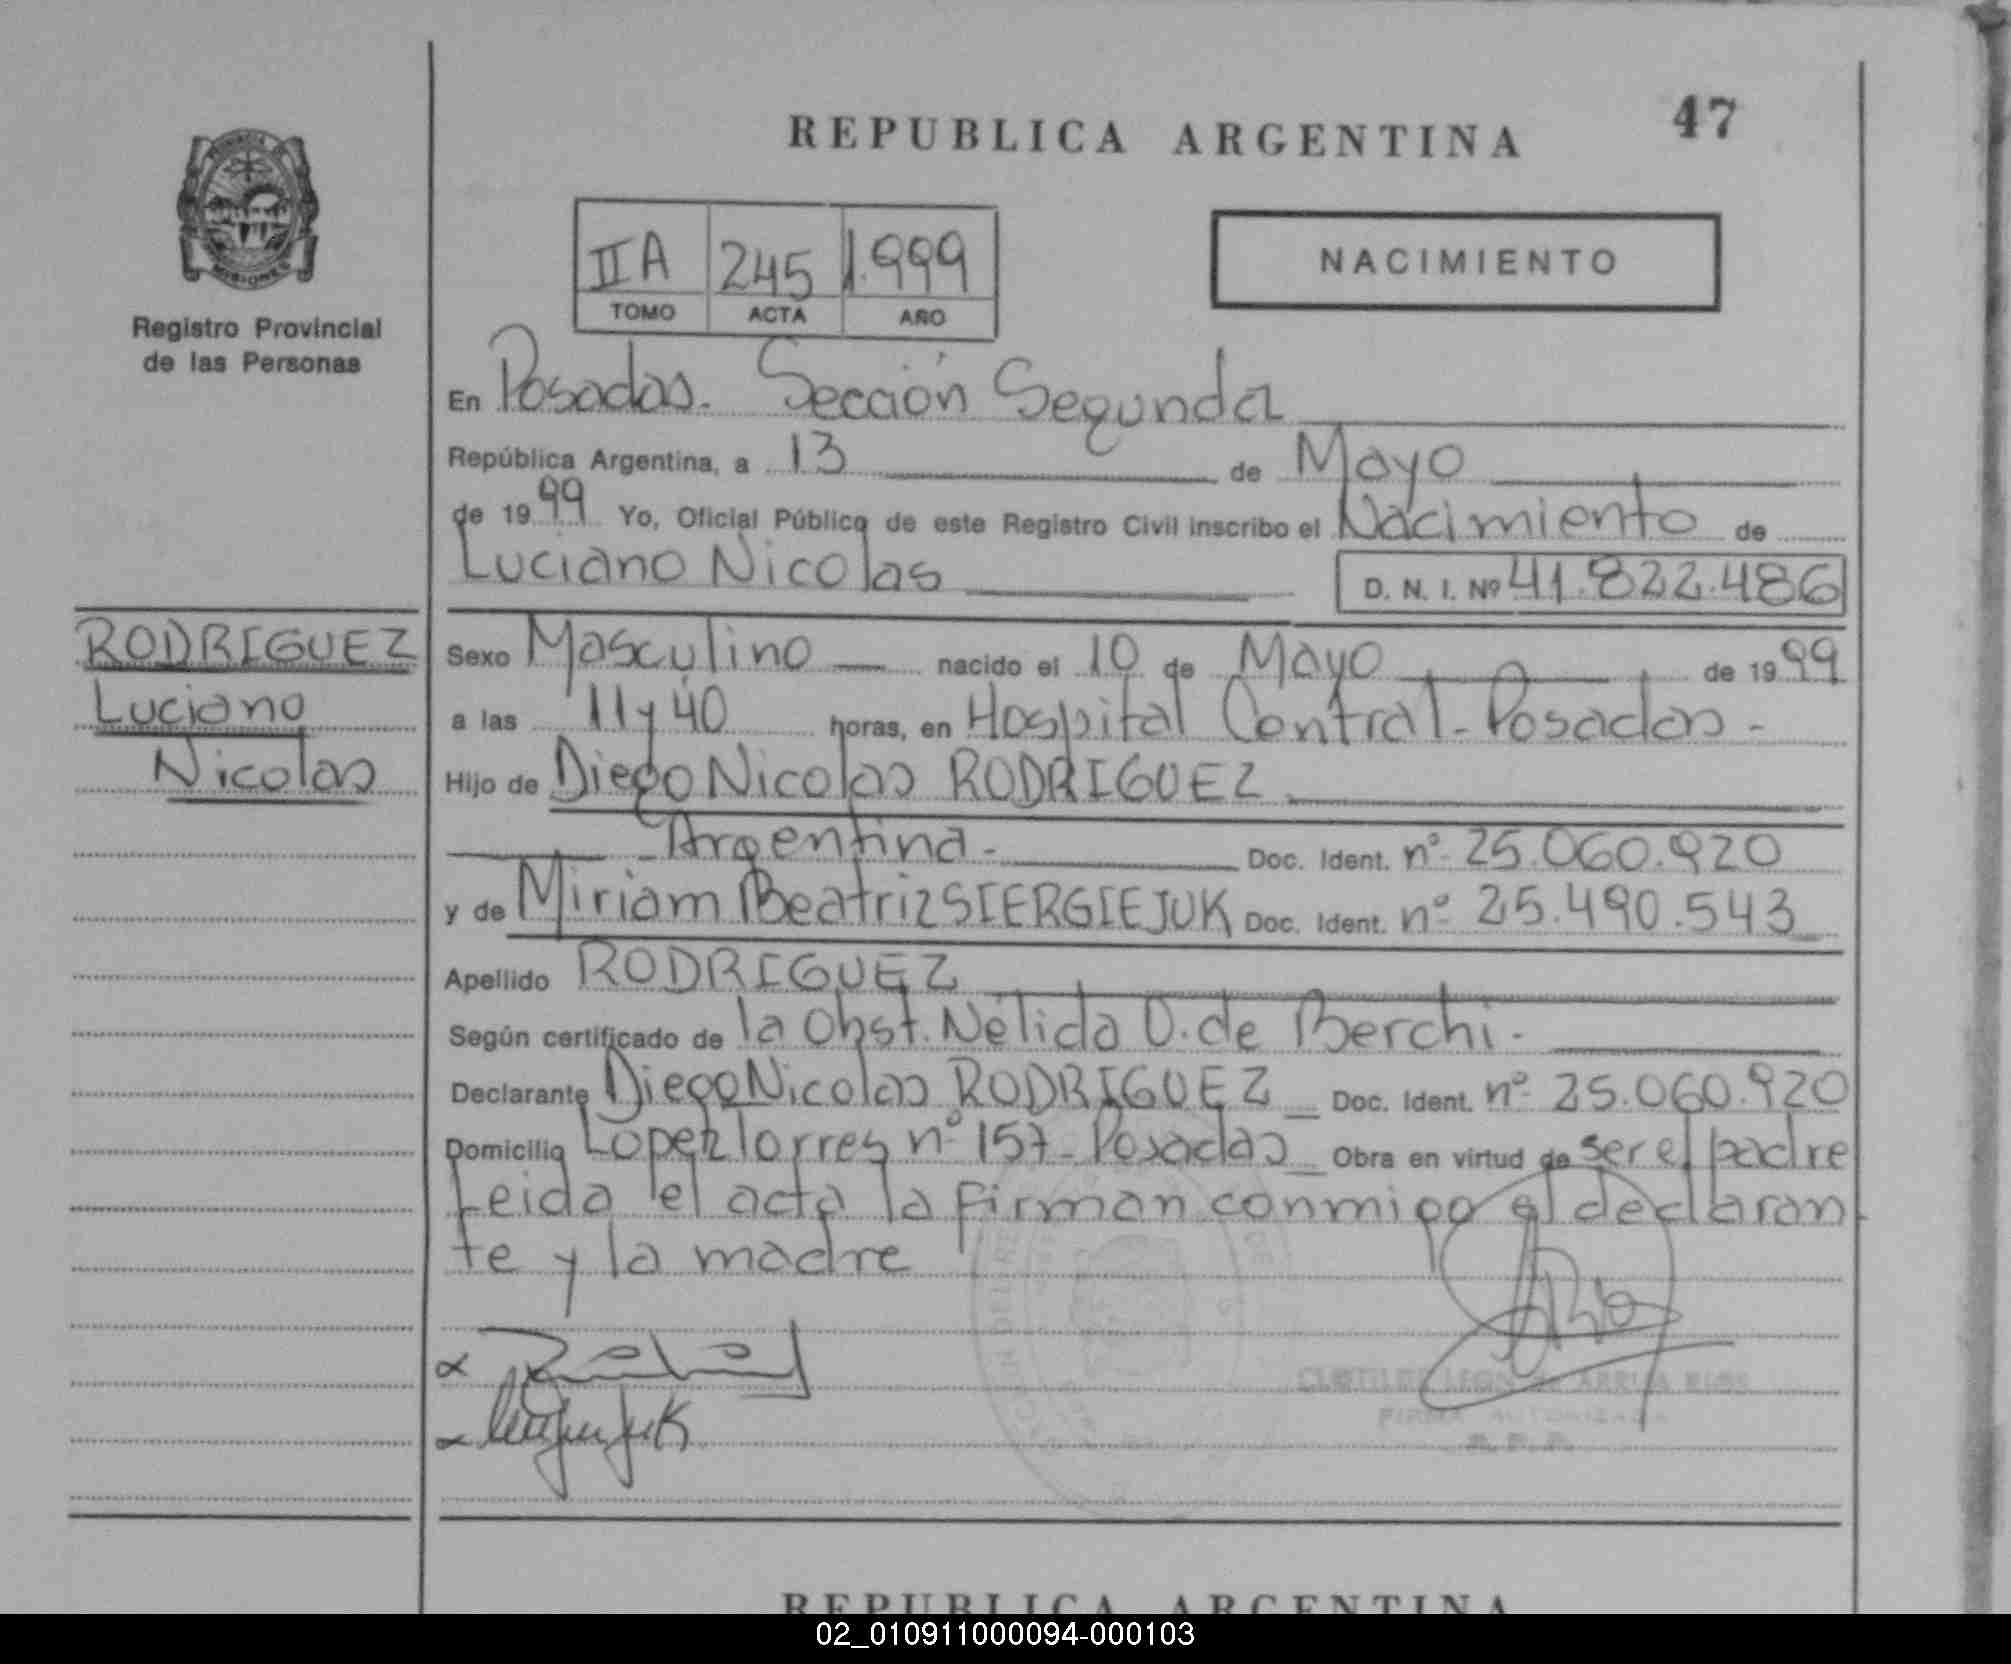 REPUBLICA ARGENTINA
47
MISIONES
Registro Provincial
de las Personas
IIA 245 1.999
TOMO ACTA AÑO
NACIMIENTO
En Posadas. Sección Segunda
República Argentina, a 13 de Mayo
de 1999 Yo, Oficial Público de este Registro Civil inscribo el Nacimiento de
Luciano Nicolas D. N. I. Nº 41.822.486
RODRIGUEZ
Luciano
Nicolas
Sexo Masculino nacido el 10 de Mayo de 1999
a las 11 y 40 horas, en Hospital Central - Posadas -
Hijo de Diego Nicolas RODRIGUEZ
Argentina - Doc. Ident. nº 25.060.920
y de Miriam Beatriz SIERGIEJUK Doc. Ident. nº 25.490.543
Apellido RODRIGUEZ
Según certificado de la Obst. Nélida O. de Berchi -
Declarante Diego Nicolas RODRIGUEZ Doc. Ident. nº 25.060.920
Domicilio Lopez Torres nº 157 - Posadas Obra en virtud de ser el padre
Leida el acta la firman conmigo el declaran
te y la madre
FIRMA AUTORIZADA
REPUBLICA ARGENTINA
02_010911000094-000103